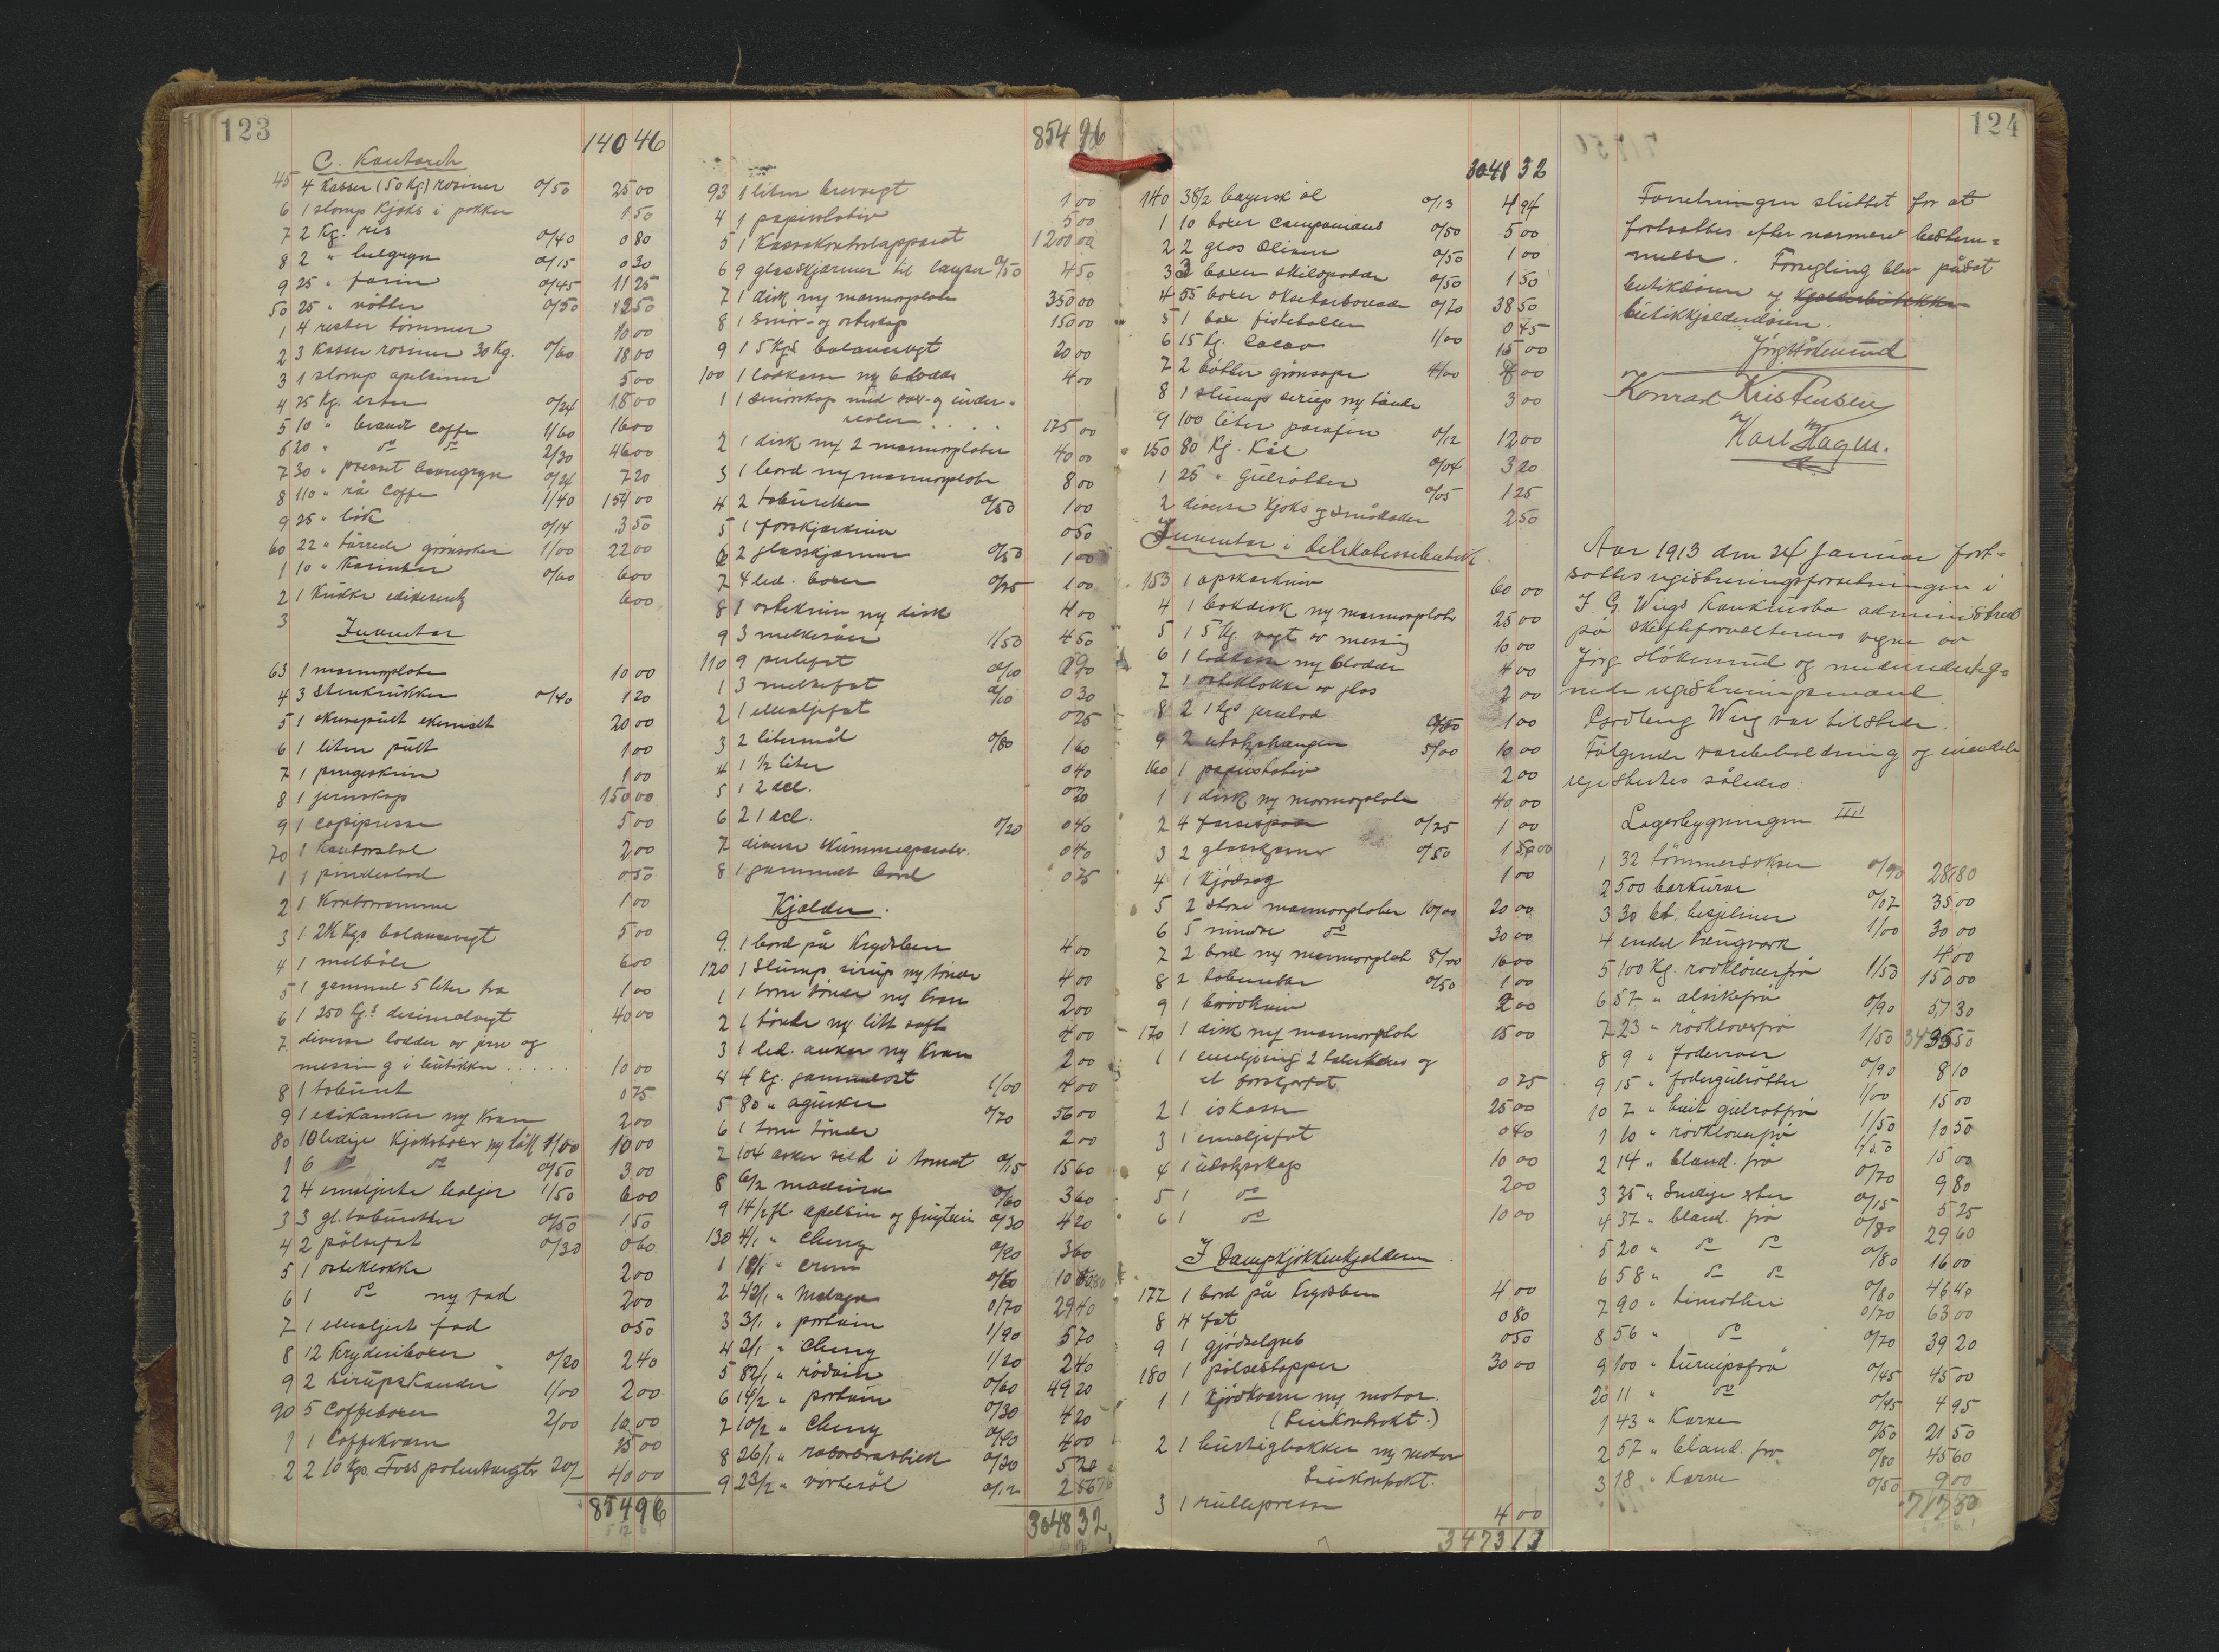 123
140 46
C. Kontoret
45 4 Kasser (50 Kg) rosiner 0/50 25 00
6 1 slump Kjeks i pakker 1 50
7 2 Kg. ris 0/40 0 80
8 2 " 0/15 0 30
9 25 " farin 0/45 11 25
50 25 " nötter 0/50 12 50
1 4 rester tömmer 10 00
2 3 Kasser rosiner 30 Kg. 0/60 18 00
3 1 slump apelsiner 5 00
4 75 Kg. erter 0/24 18 00
5 10 " brændt Caffe 1/60 16 00
6 20 " do do 2/30 46 00
7 30 " presset havregryn 0/24 7 20
8 110 " rå Caffe 1/40 154 00
9 25 " lök 0/14 3 50
60 22 " tørrede grönsaker 1/00 22 00
1 10 " Korinter 0/60 6 00
2 1 Krukke 6 00
3
Inventar
63 1 marmorplate 10 00
4 3 Stenkrukker 0/40 1 20
5 1 skrivepult 20 00
6 1 liten pult 1 00
7 1 pengeskrin 1 00
8 1 jernskap 150 00
9 1 Copipresse 5 00
70 1 Kontorstol 2 00
1 1 pindestol 0 50
2 1 1 00
3 1 2½ Kgs balansevegt 5 00
4 1 melbåle 6 00
5 1 gammel 5 liter 1 00
6 1 250 Kgs decimalvegt 40 00
7 diverse lodder av jern og
messing i butikken 10 00
8 1 taburet 0 75
9 1 edikanker m/ Kran 2 00
80 10 ledige Kjeksboxer m/ låk 1/00 10 00
1 6 do do 0/50 3 00
2 4 emaljerte baljer 1/50 6 00
3 3 gl. taburetter 0/50 1 50
4 2 pölsefat 0/30 0 60
5 1 osteklokke 2 00
6 1 do m/ fad 2 00
7 1 emaljert fad 0 50
8 12 Krydderiboxer 0/20 2 40
9 2 sirupskander 1/00 2 00
90 5 Caffeboxer 2/00 10 00
1 1 Caffekvern 25 00
2 2 10 Kgs. 20/ 40 00
854 96
854 96
93 1 liten brevvegt 1 00
4 1 papirstativ 5 00
5 1 Kassakontrolapparat 1200 00
6 9 glasskjærmer til lamper 0/50 4 50
7 1 disk m/ marmorplate 350 00
8 1 smör- og osteskap 150 00
9 1 5 Kgs balansevegt 20 00
100 1 lodkasse m/ 6 lodder 4 00
1 1 smörskap med over- og under-
175 00
2 1 disk m/ 2 marmorplater 40 00
3 1 bord m/ marmorplate 8 00
4 2 taburetter 0/50 1 00
5 1 forskjærkniv 0 50
6 2 glasskjærmer 0/50 1 00
7 4 led. boxer 0/25 1 00
8 1 ostekniv m/ disk 4 00
9 3 melkesiler 1/50 4 50
110 9 0/10 0 90
1 3 melkefat 0/10 0 30
2 1 emaljefat 0 25
3 2 litermål 0/80 1 60
4 1 ½ liter 0 40
5 1 2 del. 0 20
6 2 1 del. 0/20 0 40
7 diverse skummeapparater. 0 40
8 1 gammelt bord 0 75
Kjelder.
9 1 bord på Krydsben 4 00
120 1 Slump sirup m/ tönde 4 00
1 1 tom tönde m/ Kran 2 00
2 1 tönde m/ litt saft 4 00
3 1 led. anker m/ Kran 2 00
4 4 Kg. gammelost 1/00 4 00
5 80 " agurker 0/70 56 00
6 1 tom tönde 2 00
7 104 æsker sild i tomat 0/15 15 60
8 6/2 madeira 0/60 3 60
9 14/2 fl. apelsin og 0/30 4 20
130 4/1 " Cherry 0/90 3 60
1 18/1 " 0/60 10 80
2 42/1 " Malaga 0/70 29 40
3 3/1 " portvin 1/90 5 70
4 2/1 " Cherry 1/20 2 40
5 82/1 " rödvin 0/60 49 20
6 14/2 " portvin 0/30 4 20
7 10/2 " Cherry 0/40 4 00
8 26/1 " 0/20 5 20
9 23/2 " vörteröl 0/12 2 76
3048 32
124
3048 32
140 38/2 bayersk öl 0/13 4 94
1 10 boxer 0/50 5 00
2 2 glas Oliven 0/50 1 00
3 3 boxer skilpadde 0/50 1 50
4 55 boxer oksekarbonade 0/70 38 50
5 1 box fiskeboller 0 45
6 15 Kg. Cacao 1/00 15 00
7 2 bötter grönsape 4/00 8 00
8 1 slump sirup m/ tönde 3 00
9 100 liter parafin 0/12 12 00
150 80 Kg. Kål 0/04 3 20
1 25 " Gulrötter 0/05 1 25
2 diverse Kjeks og småkaker 2 50
Inventar i delikatessebutik.
153 1 opskærkniv 60 00
4 1 m/ marmorplate 25 00
5 1 5 Kg. vegt av messing 10 00
6 1 lodkasse m/ 6 lodder 4 00
7 1 osteklokke av glas 2 00
8 2 1 Kgs jernlod 0/50 1 00
9 2 utstyrstænger 5/00 10 00
160 1 papirstativ 2 00
1 1 disk m/ marmorplate 40 00
2 4 0/25 1 00
3 2 glasskjærmer 0/50 1 00
4 1 Kjödsag 1 00
5 2 större marmorplater 10/00 20 00
6 5 mindre do 30 00
7 2 bord m/ marmorplate 8/00 16 00
8 2 taburetter 0/50 1 00
9 1 brödkniv 2 00
170 1 disk m/ marmorplate 15 00
1 1 2 og
et 0 75
2 1 iskasse 25 00
3 1 emaljefat 0 40
4 1 udstyrskap 10 00
5 1 do 2 00
6 1 do 10 00
I Dampkjökkenkjelderen
177 1 bord på Krydsben 4 00
8 4 fat 0 80
9 1 gjödselgreb 0 50
180 1 pölsestopper 30 00
1 1 Kjödkvern m/ motor.
(Leiekontrakt.)
2 1 hurtighakker m/ motor
Leiekontrakt.
3 1 rullepresse 4 00
3473 13
Forretningen sluttet for at
fortsættes efter nærmere bestem-
melse. Forsegling blev påsat
butikdören og
butikkjelderdören.
Jörg Hökensrud
Konrad Kristensen
Karl Hagen.
Aar 1913 den 24 januar fort-
sattes registreringsforretningen i
J. G. Wiigs Konkursbo administrert
på skifteforvalterens vegne av
Jörg. Hökensrud og medundertegn-
nede registreringsmænd.
Wiig var tilstede.
Fölgende varebeholdning og inventar
registrertes således:
Lagerbygningen III
1 32 tömmersakser 0/90 28 80
2 500 barkurver 0/07 35 00
3 30 bt. hesjeliner 1/00 30 00
4 endel taugverk 4 00
5 100 Kg. rödklöverfrö 1/50 150 00
6 57 " alsikefrö 0/90 51 30
7 23 " rödklöverfrö 1/50 34 50
8 9 " foderroer 0/90 8 10
9 15 " fodergulrötter 1/00 15 00
10 7 " hvit gulrotfrö 1/50 10 50
1 10 " rödklöverfrö 1/50 15 00
2 14 " bland. frö 0/70 9 80
3 35 " erter 0/15 5 25
4 37 " bland. frö 0/80 29 60
5 20 " do do 0/80 16 00
6 58 " do do 0/80 46 40
7 90 " timothei 0/70 63 00
8 56 " do 0/70 39 20
9 100 " turnipsfrö 0/45 45 00
20 11 " do 0/45 4 95
1 43 " Karve 0/50 21 50
2 57 " bland. frö 0/80 45 60
3 18 " Karve 0/50 9 00
717 50